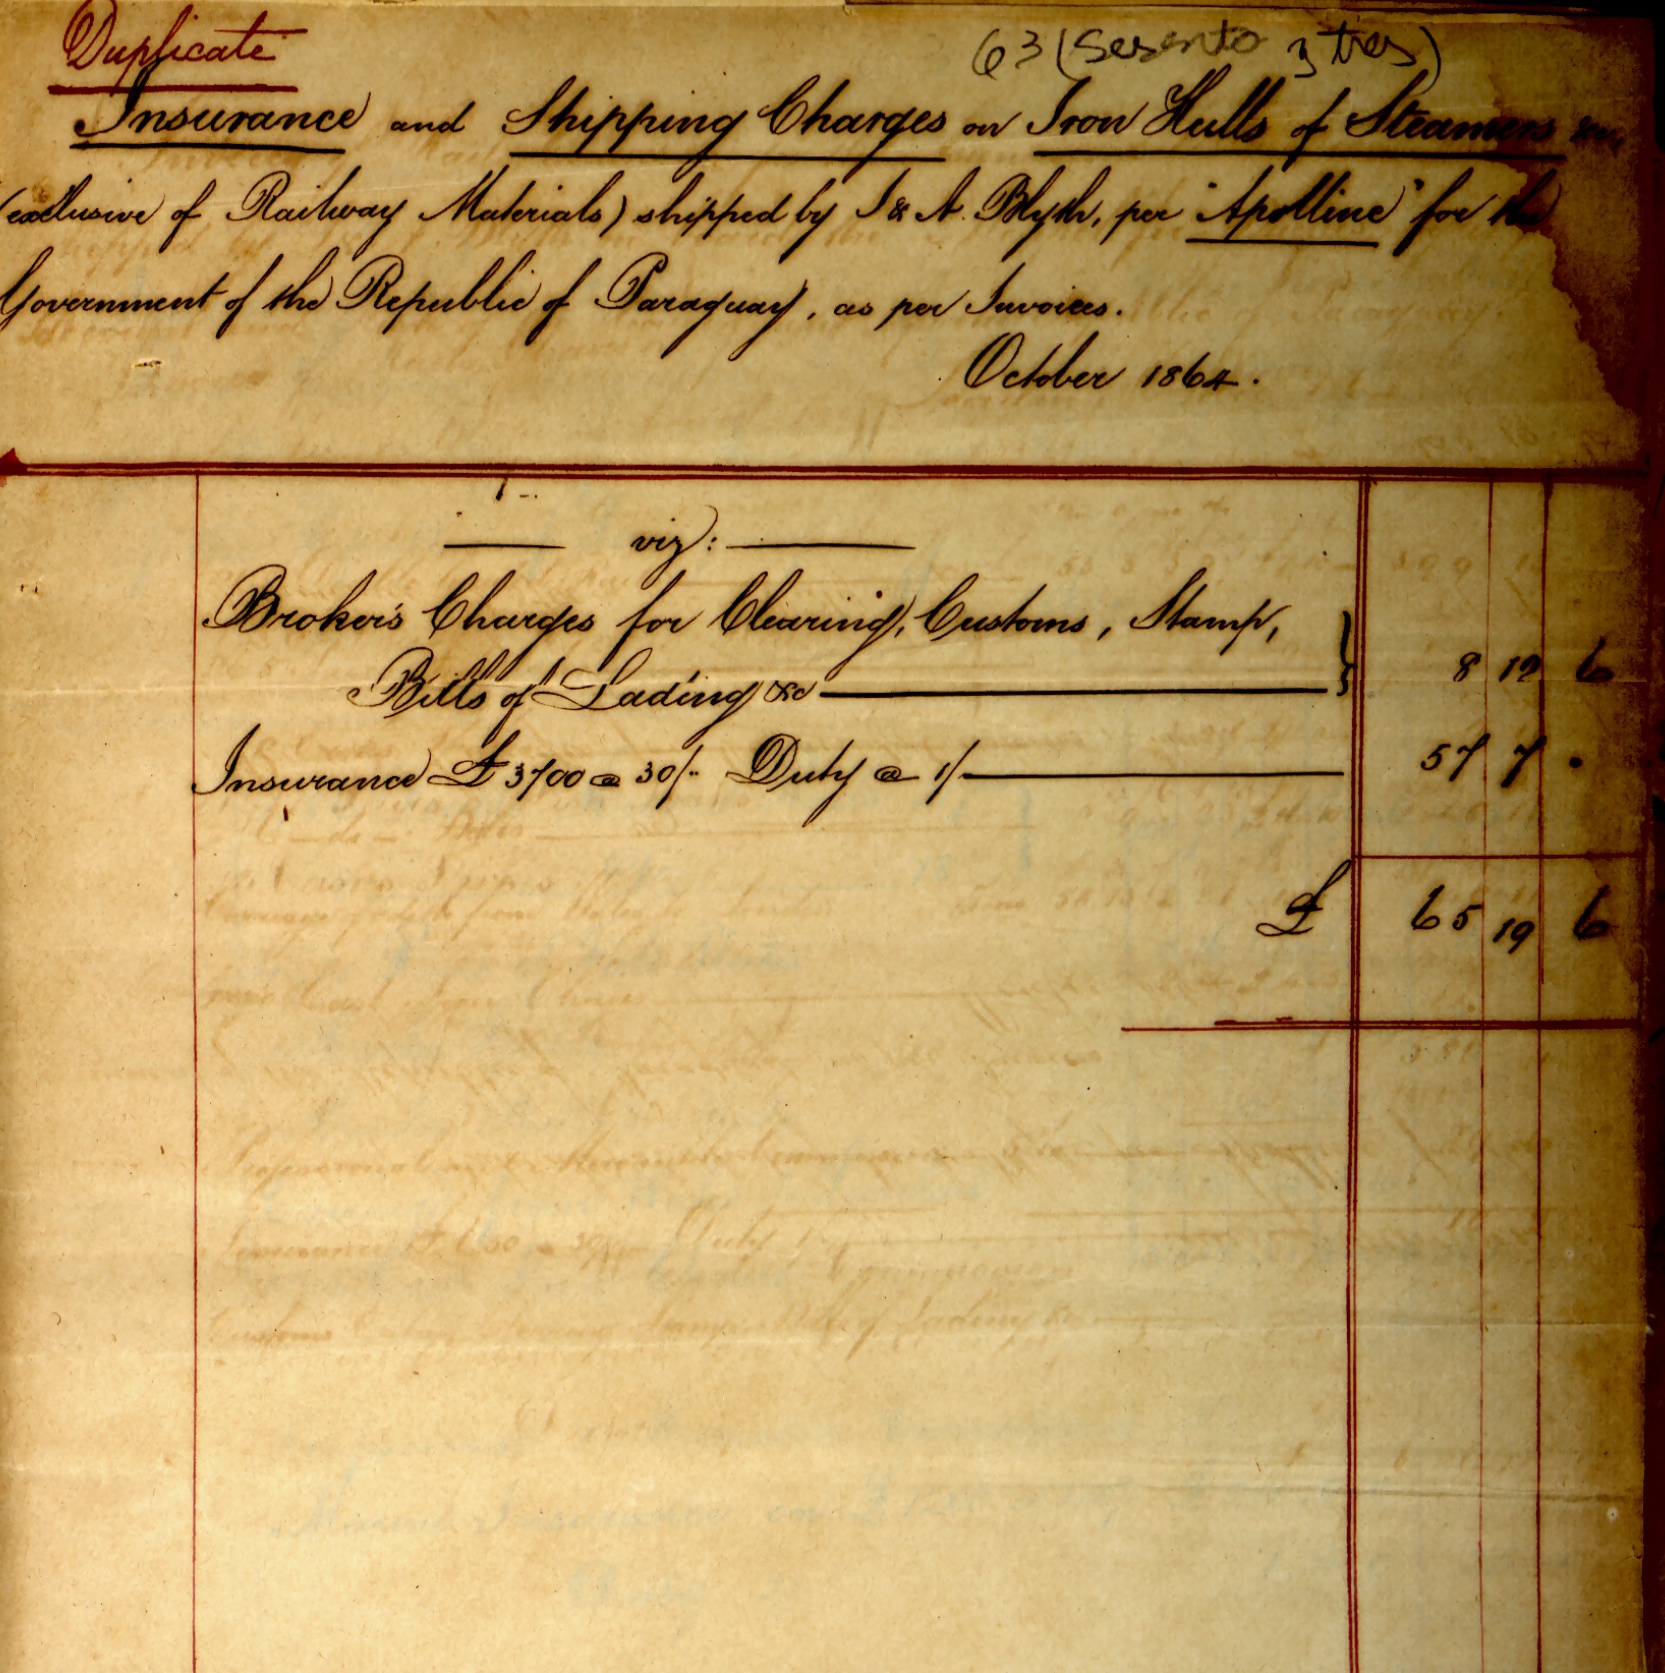 Duplicate
63 (Sesenta y tres)
Insurance and Shipping Charges on Iron Hulls of Steamers &c,
(exclusive of Railway Materials) shipped by J & A. Blyth, per "Apolline" for the
Government of the Republic of Paraguay, as per Invoices.
October 1864.
viz:
Broker's Charges for Clearing, Customs, Stamp,
Bills of Lading &c 8 12 6
Insurance £3700 @ 30/- Duty @ 1/ 57 7 .
£ 65 19 6